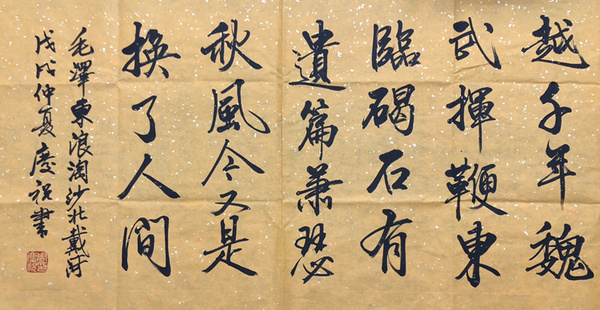 越千年魏
武揮鞭東
臨碣石有
遺篇蕭瑟
秋風今又是
換了人间
毛澤東浪淘沙北戴河
戊戌仲夏慶祝書